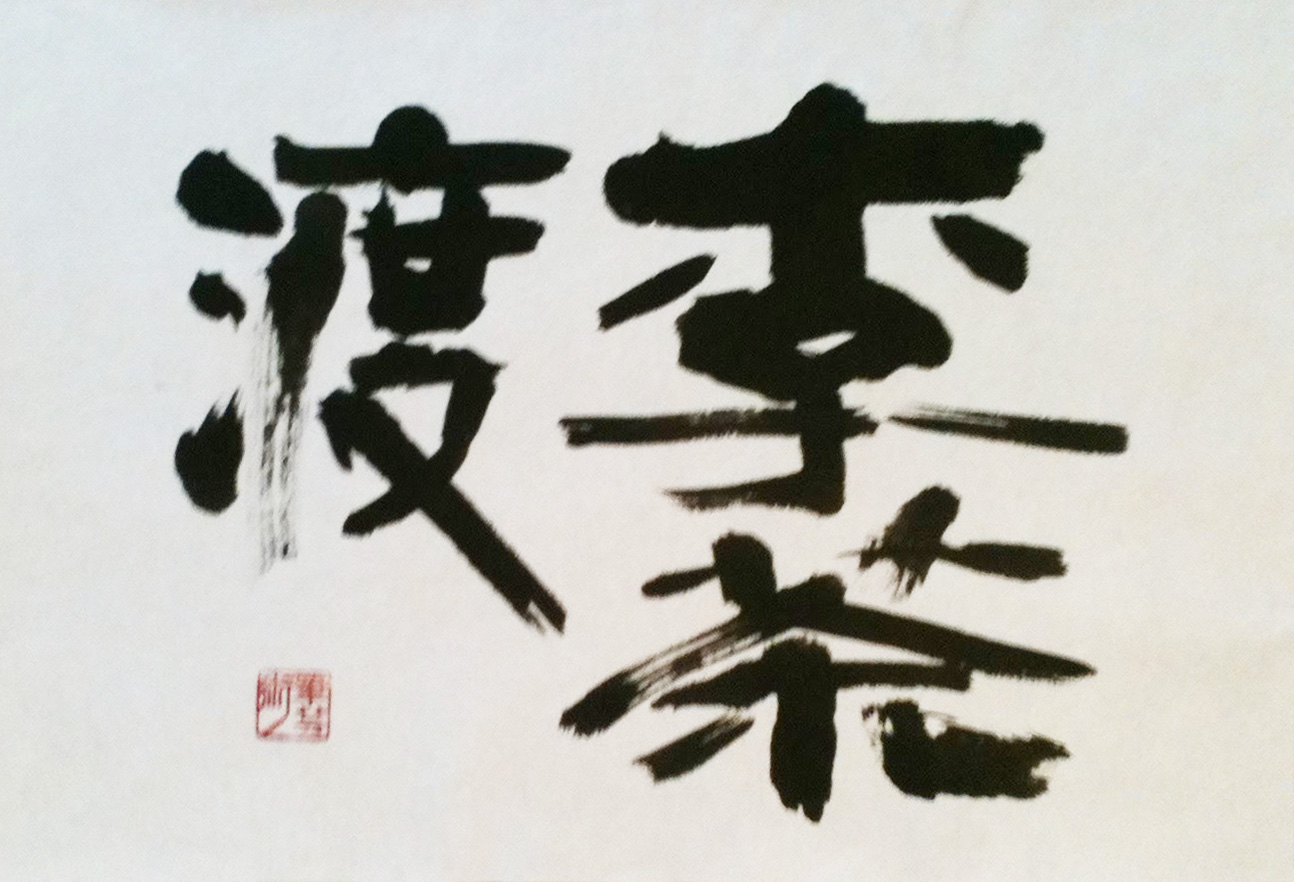 李茶
渡